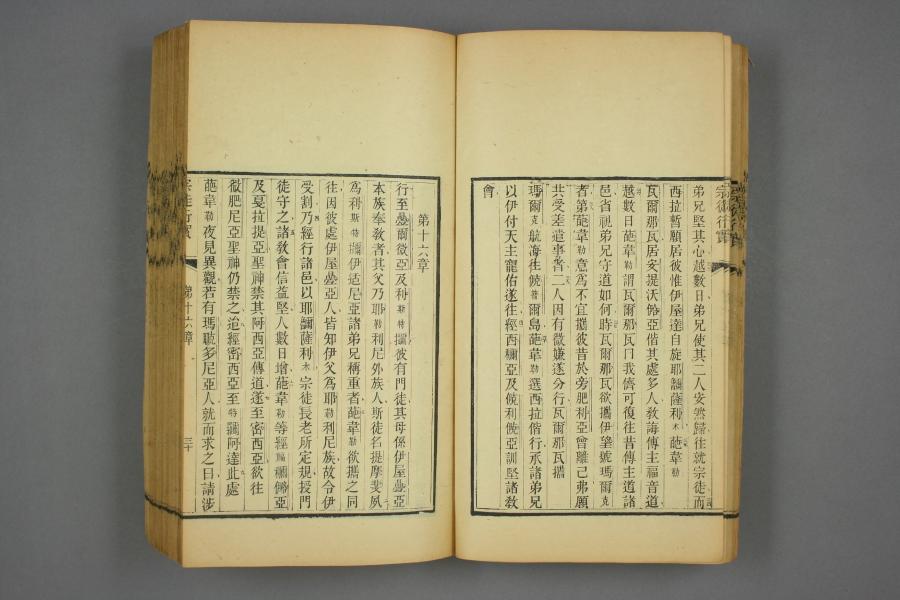 弟兄堅其心越數日弟兄使其二人安然歸往就宗徒而
西拉暫願居彼惟伊屋達自旋耶嚕薩利木葩韋勒
瓦爾那瓦居安提沃偕其處多人教誨傳主福音道
越數日葩韋勒謂瓦爾那瓦曰我儕可復往昔傳主道諸
邑省視弟兄守道如何時瓦爾那瓦欲攜伊望號瑪爾克
者第葩韋勒意為不宜攜彼昔於旁肥利亞曾離己弗願
共受差遣事者二人因有微嫌遂分行瓦爾那瓦攜
瑪爾克航海往島葩韋勒選西拉偕行承諸弟兄
以伊付天主寵佑遂往經西亞及利亞訓堅諸教
會
第十六章
行至爾微亞及利斯特彼有門徒其母係伊屋亞
本族奉教者其父乃耶利尼外族人斯徒名提摩斐夙
為利斯特伊适尼亞諸弟兄稱重者葩韋勒欲攜之同
往因彼處伊屋亞人皆知伊父為耶利尼族故令伊
受割乃經行諸邑以耶嚕薩利木宗徒長老所定規授門
徒守之諸教會信益堅人數日增葩韋勒等經亞
及戛拉提亞聖神禁其阿西亞傳道遂至密西亞欲往
肥尼亞聖神仍禁之迨經密西亞至特阿達此處
葩韋勒夜見異觀若有瑪多尼亞人就而求之曰請涉
第十六章
三十